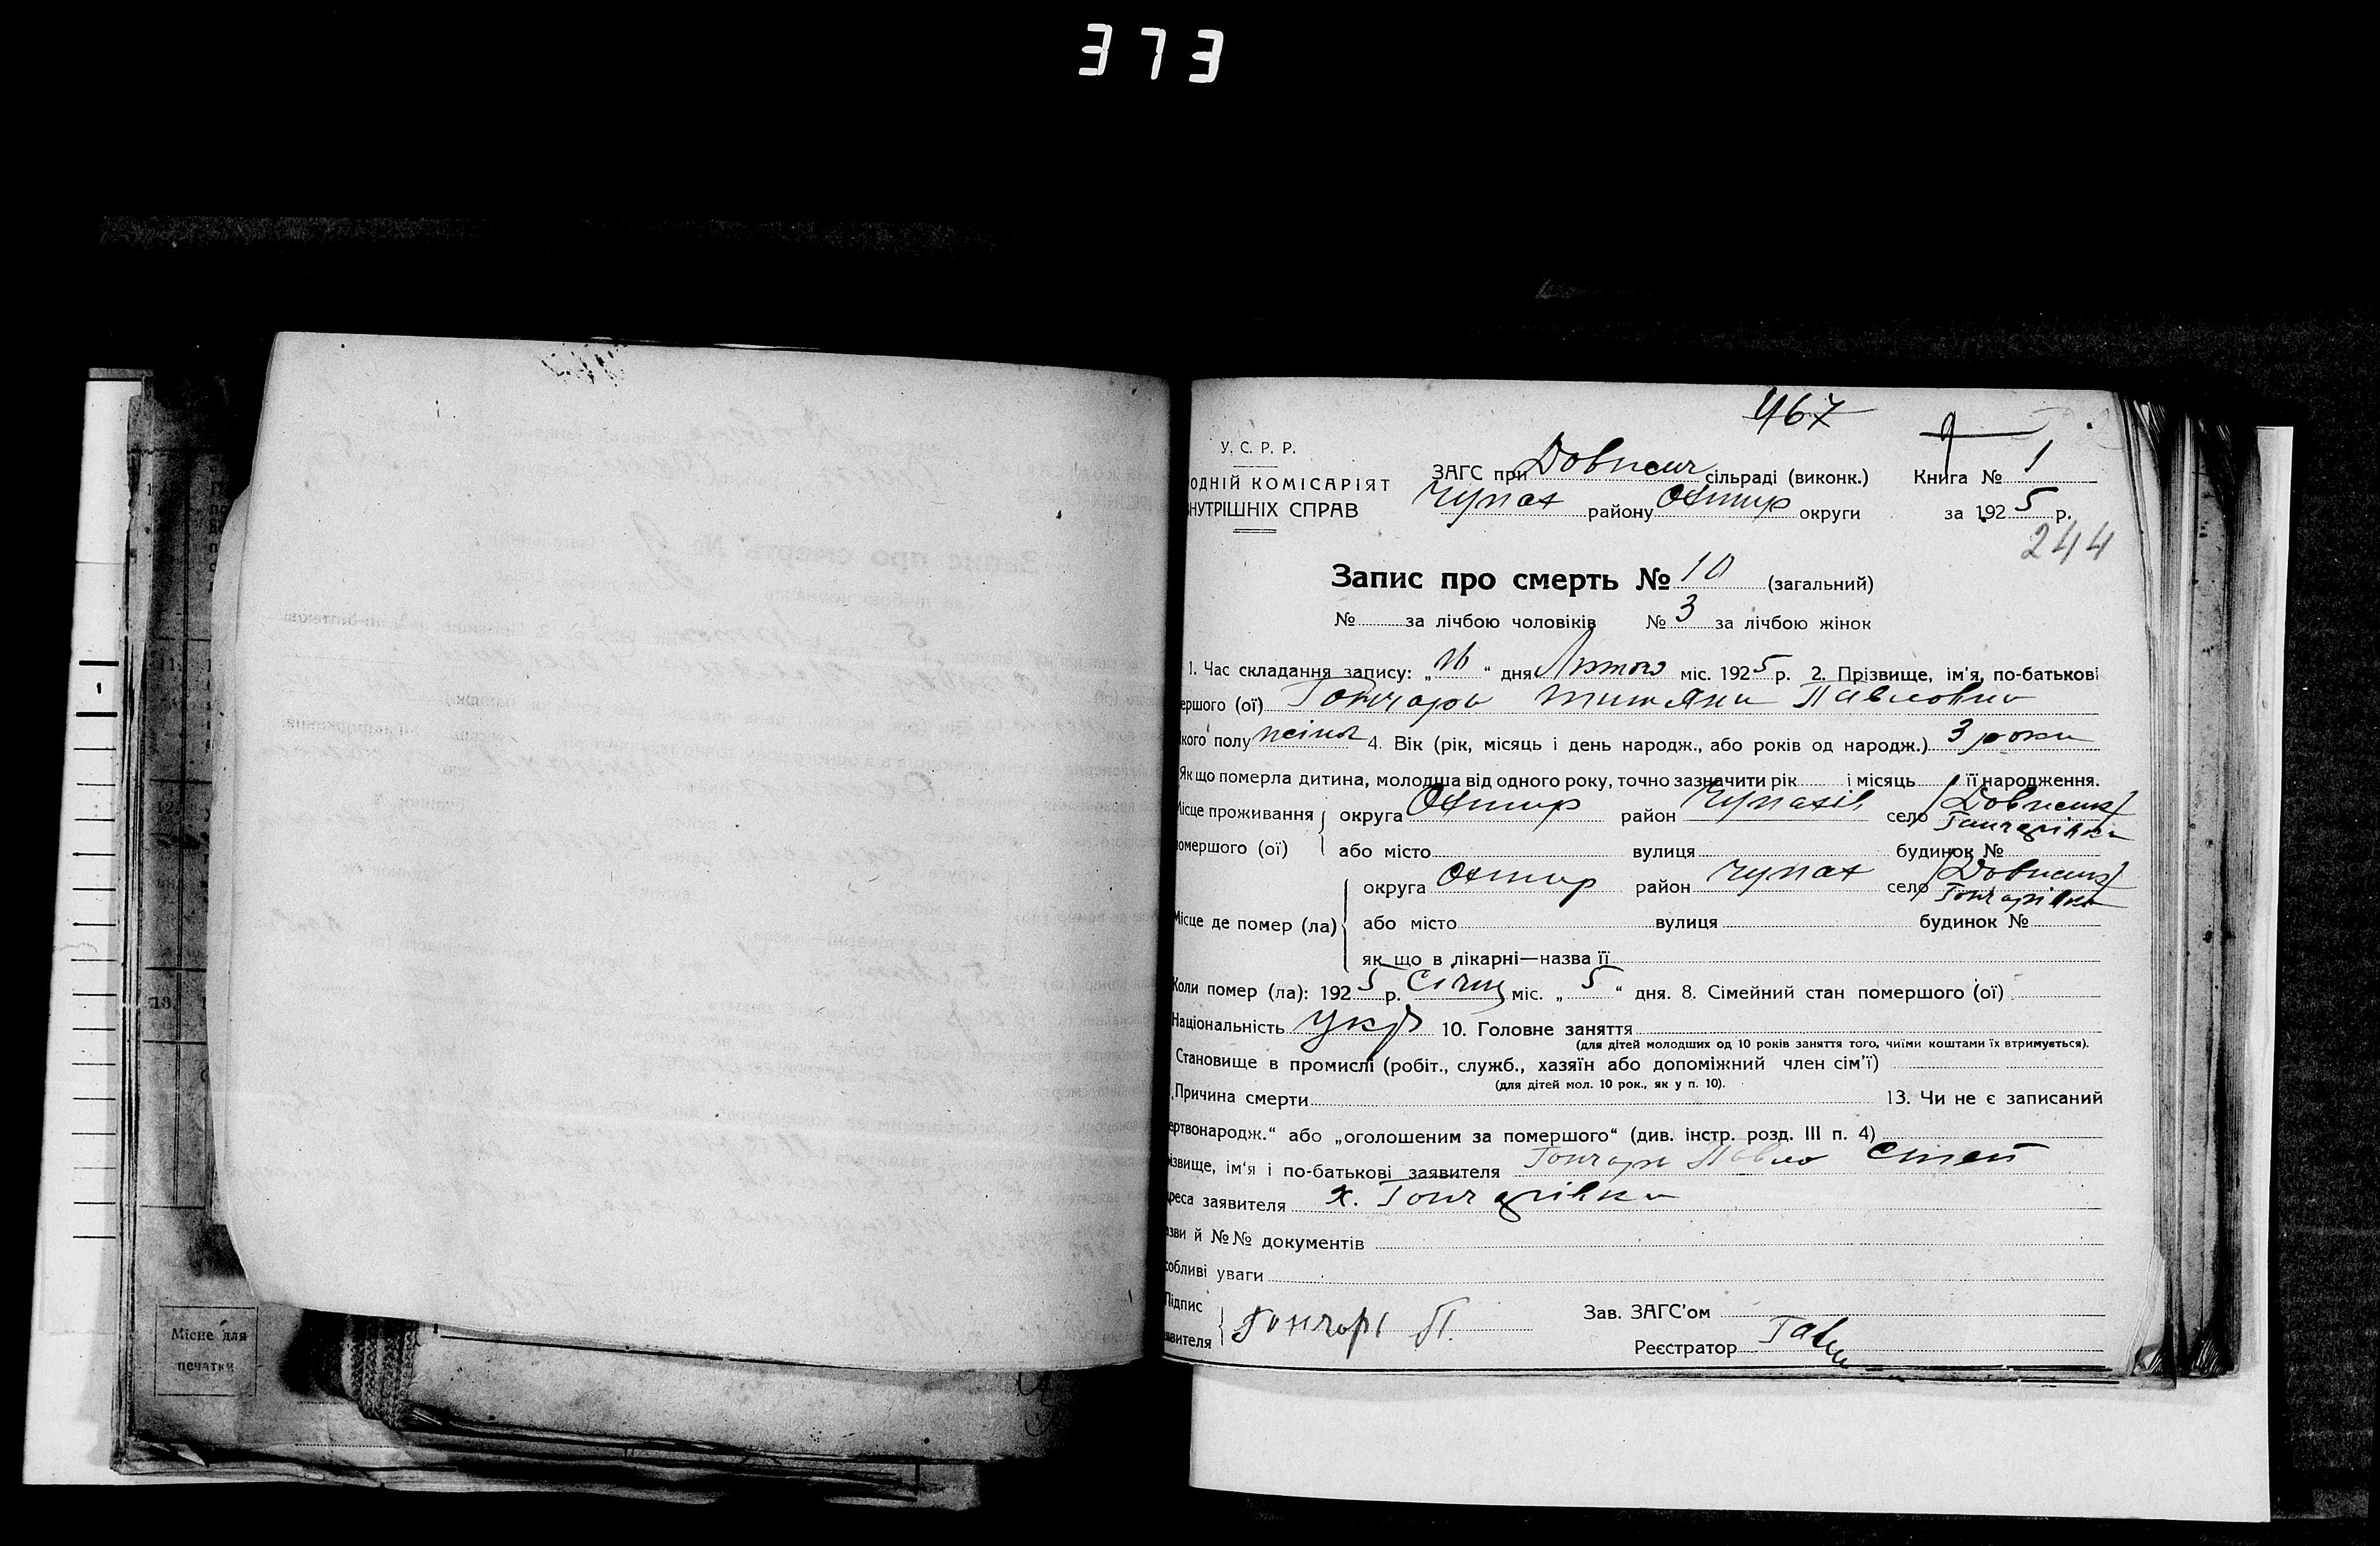 373
467
У. С. Р. Р.
ОДНІЙ КОМІСАРІЯТ
НУТРІШНІХ СПРАВ
ЗАГС при сільраді (виконк.)
Чупах району Охтир округи
Книга № 1
за 1925 р.
244
Запис про смерть № 10 (загальний)
№ за лічбою чоловіків № 3 за лічбою жінок
1. Час складання запису: „16“ дня Лютого міс. 1925 р. 2. Прізвище, ім'я, по-батькові
ершого (ої) Гончарь Павловна
кого полу жіноч 4. Вік (рік, місяць і день народж., або років од народж.) 3 роки
Як що померла дитина, молодша від одного року, точно зазначити рік і місяць її народження.
Місце проживання округа Охтир район село Гончарівка
омершого (ої) або місто вулиця будинок №
округа Охтир район Чупах село Гончарівка
Місце де помер (ла) або місто вулиця будинок №
як що в лікарні—назва її
Коли помер (ла): 1925 р. Січня міс. „5“ дня. 8. Сімейний стан помершого (ої)
Національність укр 10. Головне заняття
(для дітей молодших од 10 років заняття того, чиїми коштами їх втримується).
Становище в промислі (робіт., служб., хазяїн або допоміжний член сім'ї)
(для дітей мол. 10 рок., як у п. 10).
Причина смерти 13. Чи не є записаний
ертвонародж.“ або „оголошеним за помершого“ (див. інстр. розд. III п. 4)
ізвище, ім'я і по-батькові заявителя Гончарь Павло Степ
реса заявителя х. Гончарівка
зви й №№ документів
собливі уваги
Підпис
явителя Гончарь П.
Зав. ЗАГС'ом
Реєстратор
Місце для
печатки